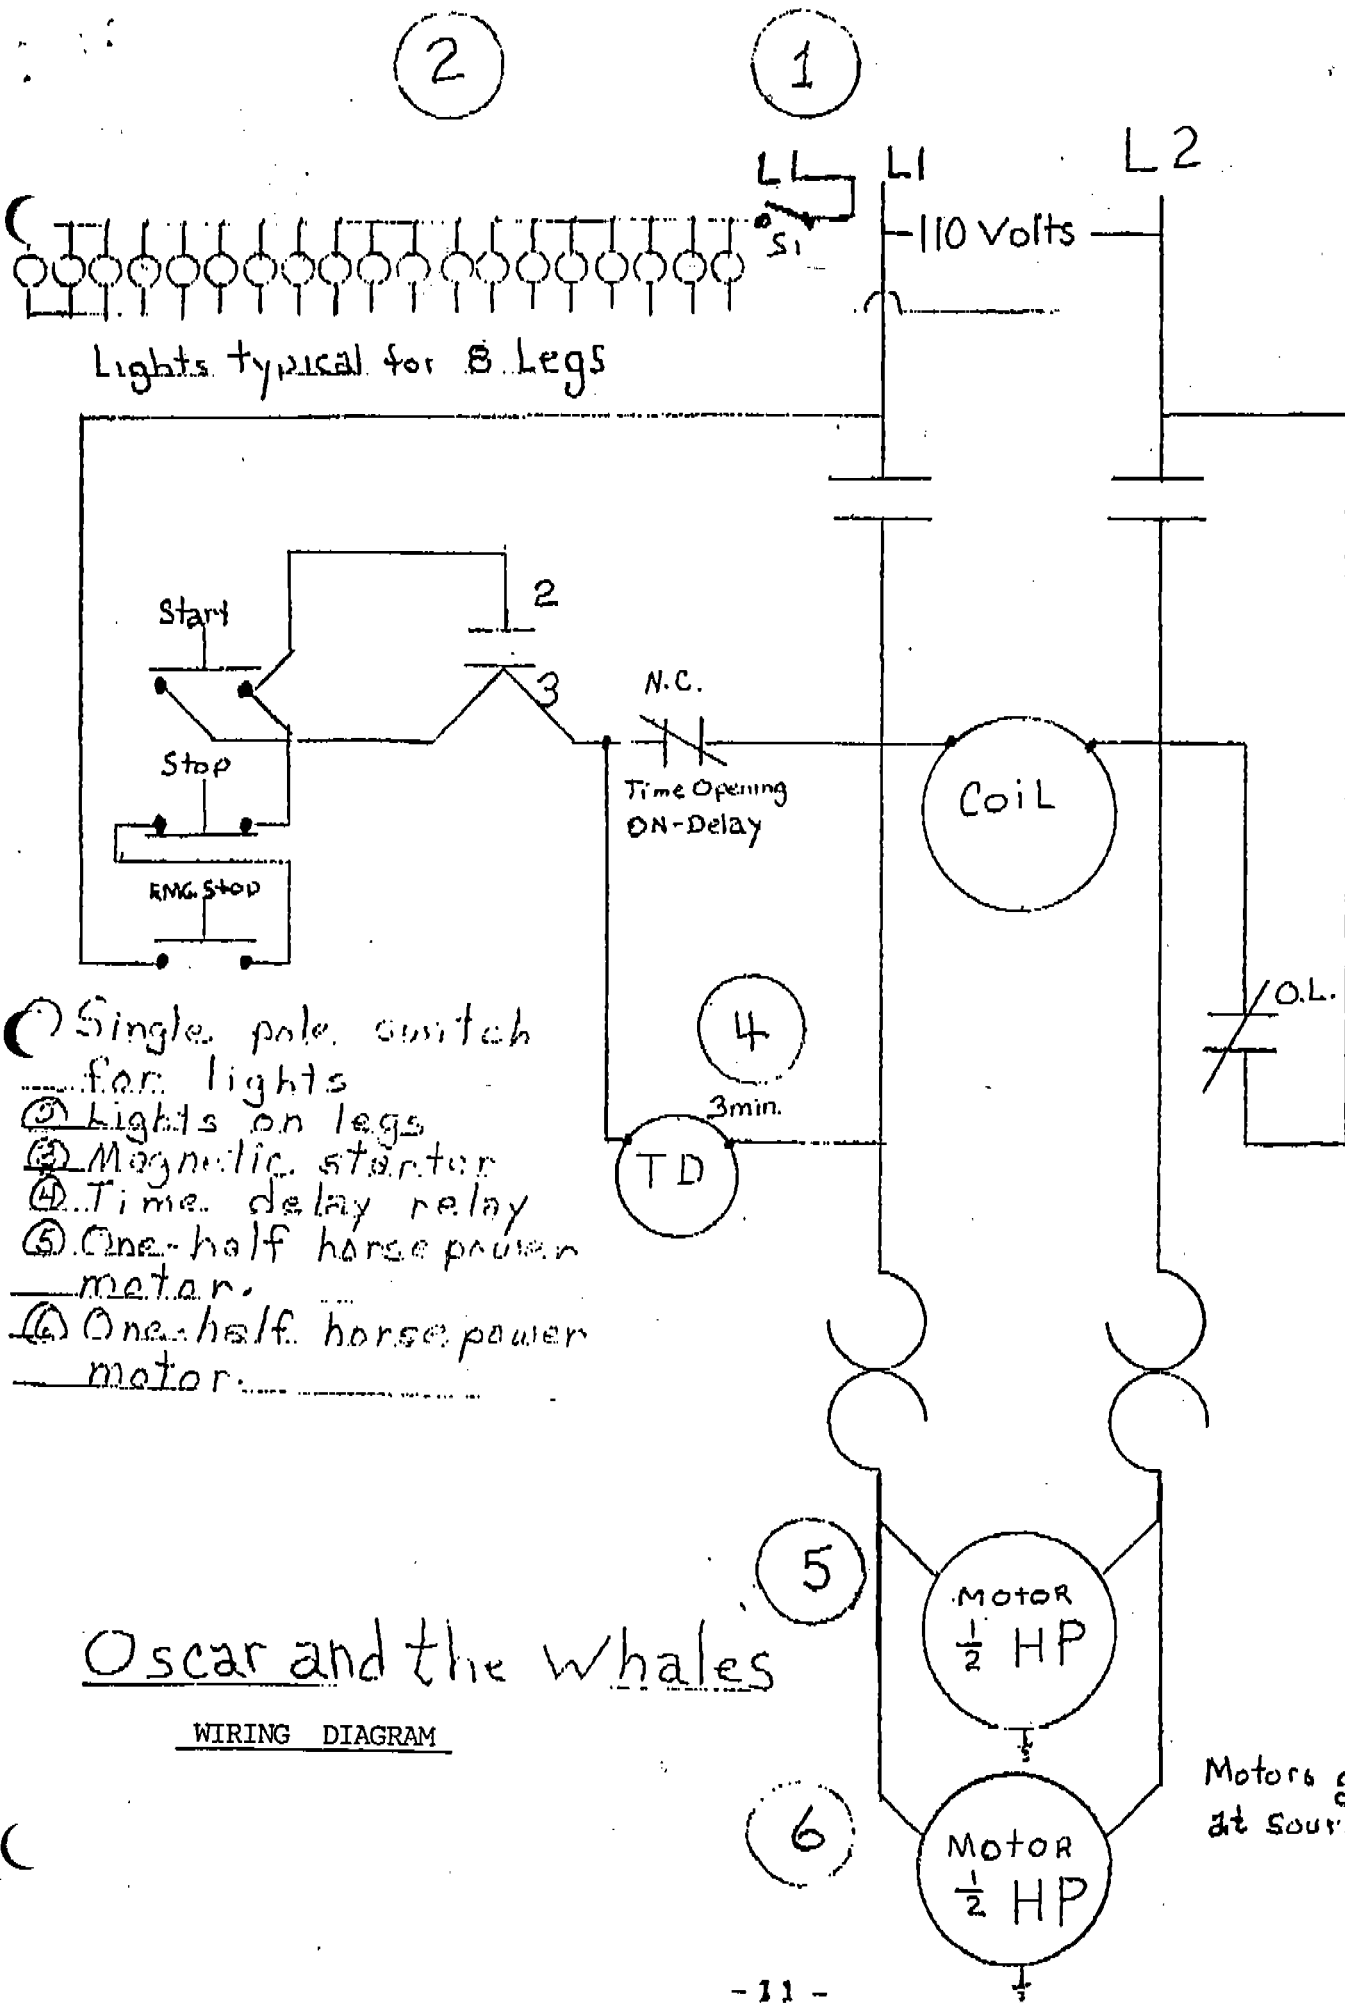 2
1
L1
L1
L2
S1
110 Volts
Lights typical for 8 Legs
2
Start
3
N.C.
Stop
Time Opening
ON-Delay
Coil
EMG. Stop
O.L.
① Single pole switch
for lights
② Lights on legs
③ Magnetic starter
④ Time delay relay
⑤ One-half horsepower
motor.
⑥ One-half horsepower
motor.
4
3min.
TD
5
Motor
1/2 HP
Oscar and the Whales
WIRING DIAGRAM
Motors
at
6
Motor
1/2 HP
-11-